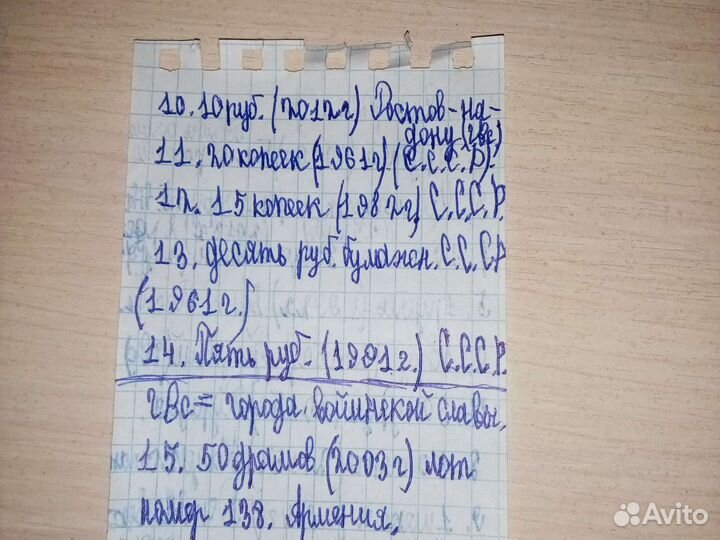 10. 10 руб. (2012г.) Ростов-на-
дону (гвс)
11. 20 копеек (1961г.) (С.С.С.Р).
12. 15 копеек (1982г.) С.С.С.Р.
13. десять руб. бумажн. С.С.С.Р
(1961г.)
14. Пять руб. (1991г.) С.С.С.Р.
гВс = города. воинской славы.
15. 50 драмов (2003г) лот
номер 138. Армения.
Avito